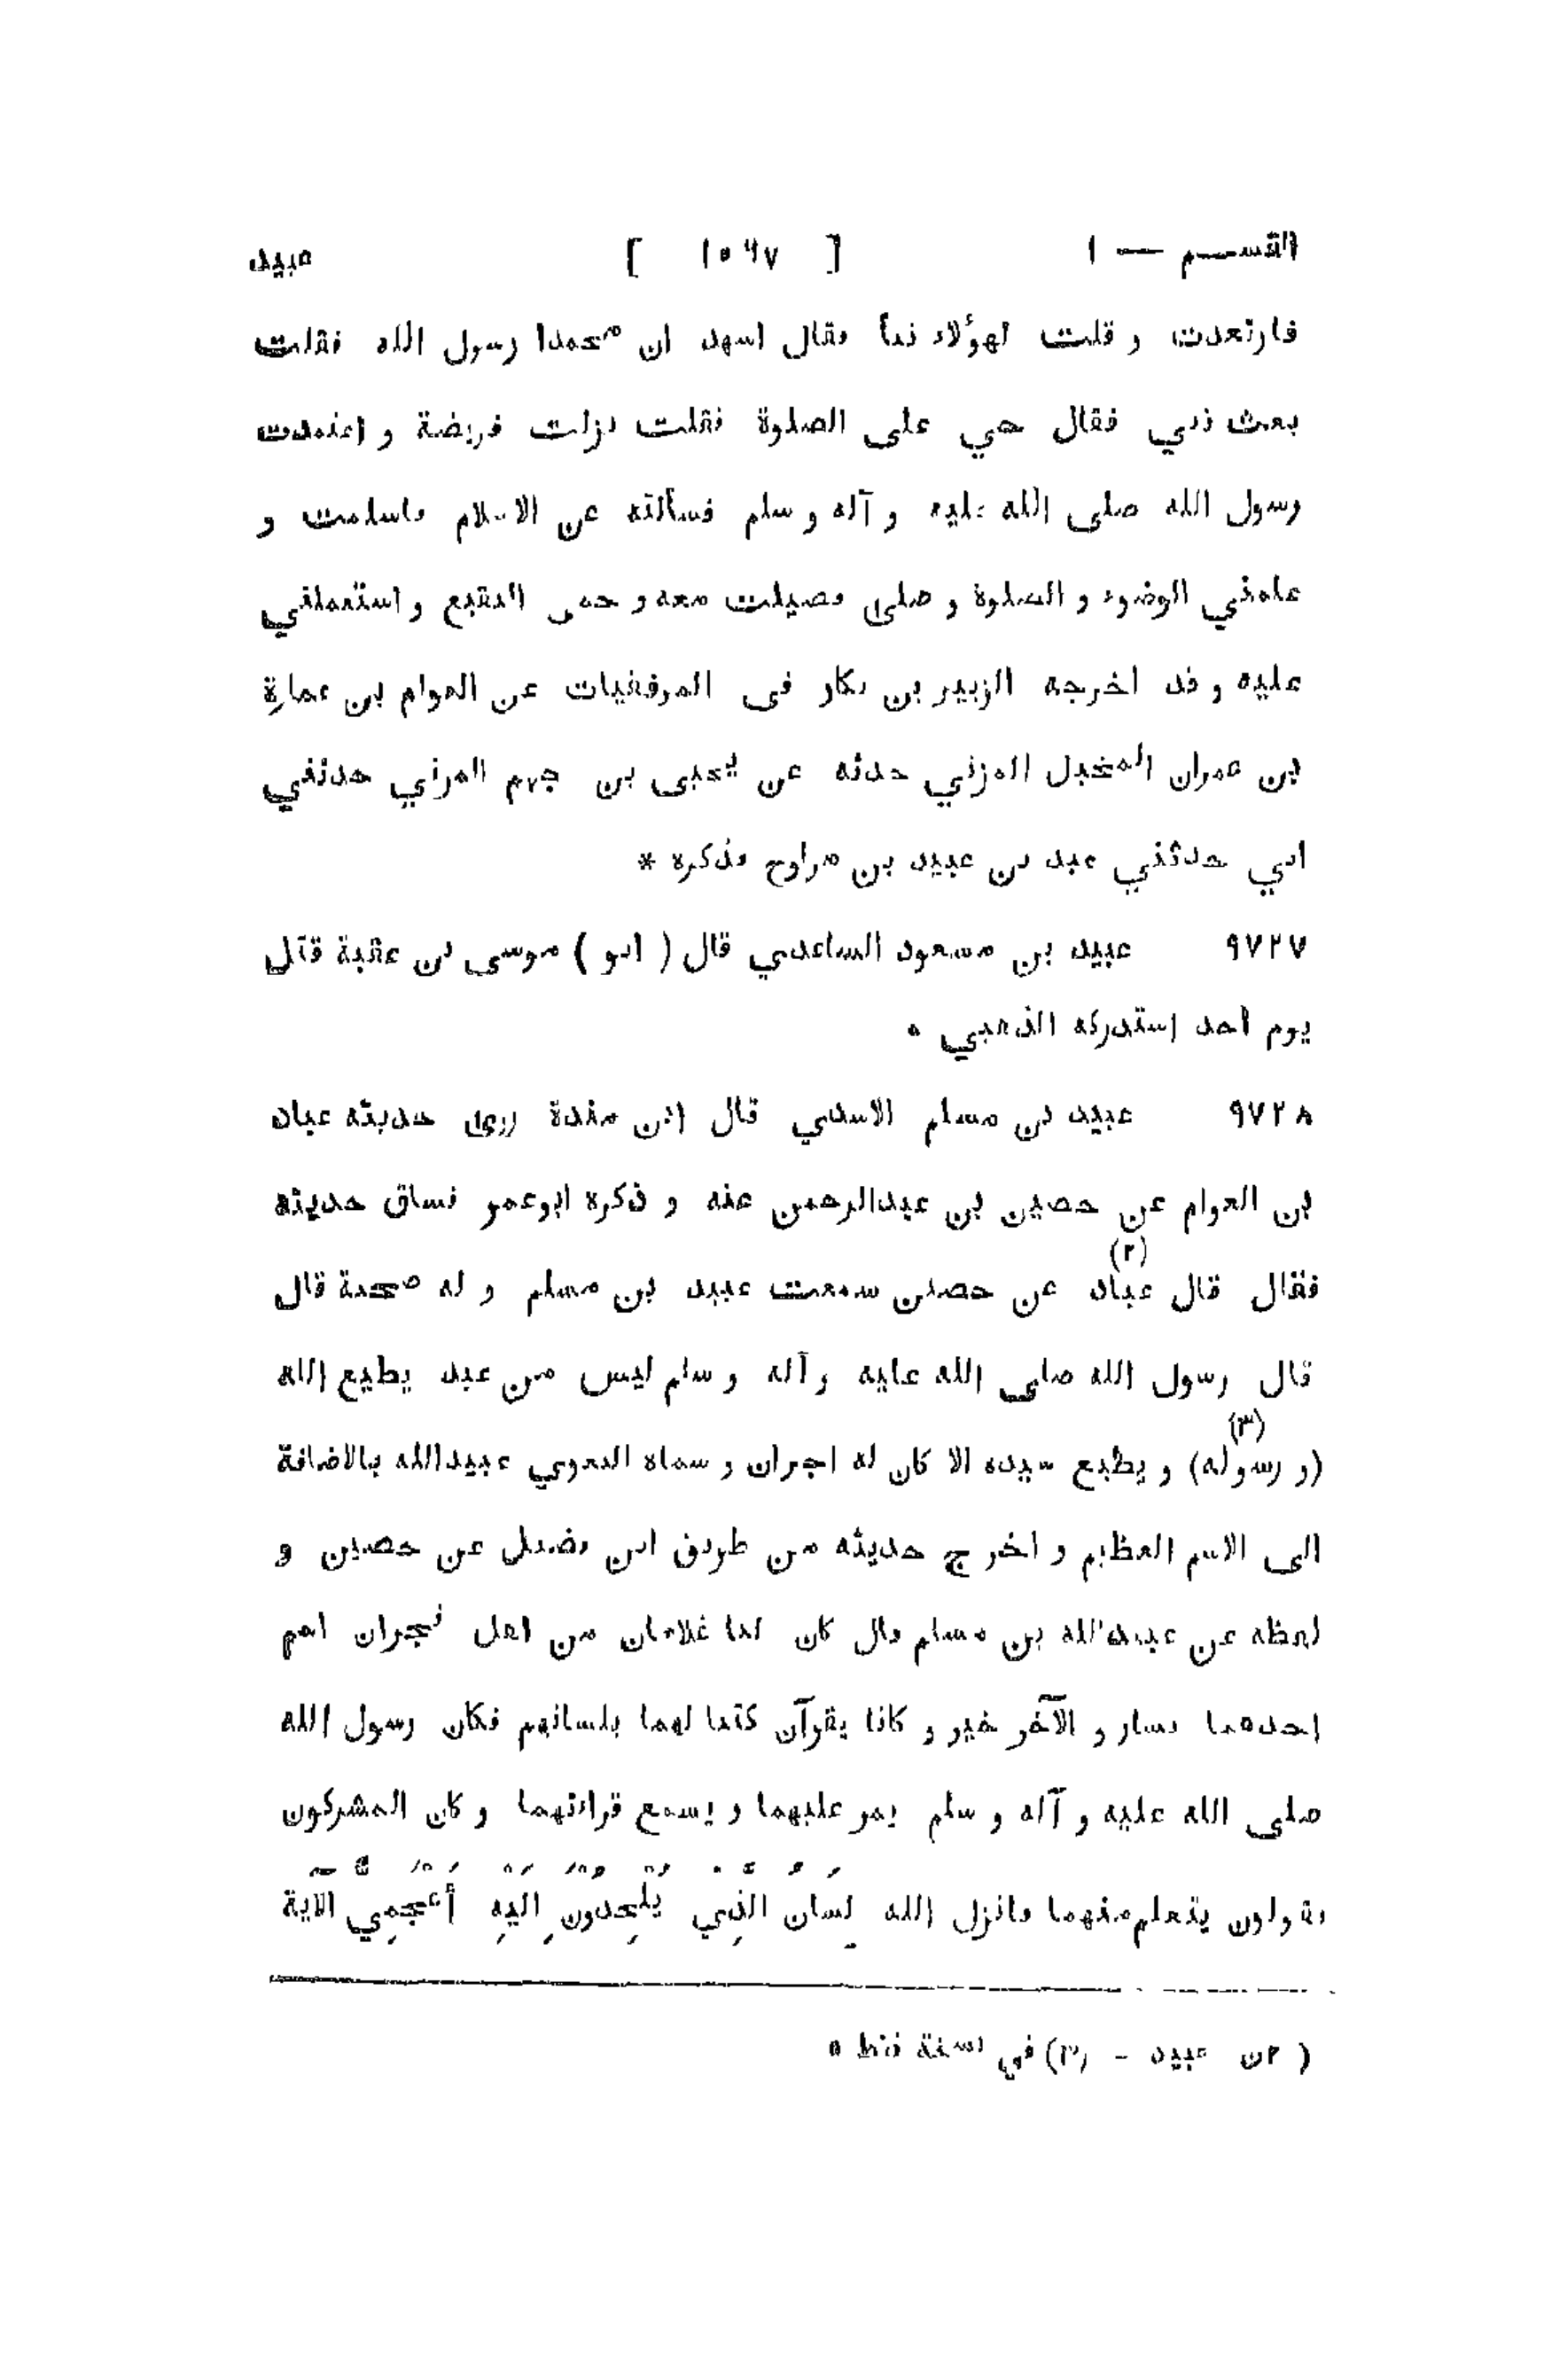 القسم — ١ [ ١٥٩٧ ] عبيد
فارتعدت و قلت لهؤلاء نبأ فقال اشهد ان محمدا رسول الله فقلت
بعث نبي فقال حي على الصلوة فقلت نزلت فريضة و اعتمدت
رسول الله صلى الله عليه و آله و سلم فسألته عن الاسلام فاسلمت و
علمني الوضوء و الصلوة و صلى فصليت معه و حمى البقيع و استعملني
عليه و قد اخرجه الزبير بن بكار فى الموفقيات عن العوام بن عمارة
بن عمران المخبل المزني حدثه عن يحيى بن جهم المزني حدثني
ابي حدثني عبد بن عبيد بن مراوح فذكره *
٩٧٢٧ عبيد بن مسعود الساعدي قال ( ابو ) موسى بن عقبة قتل
يوم أحد استدركه الذهبي *
٩٧٢٨ عبيد بن مسلم الاسدي قال ابن مندة روى حديثه عباد
بن العوام عن حصين بن عبدالرحمن عنه و ذكره ابوعمر فساق حديثه
فقال قال عباد (٢) عن حصين سمعت عبيد بن مسلم و له صحبة قال
قال رسول الله صلى الله عليه و آله و سلم ليس من عبد يطيع الله
(و رسوله) (٣) و يطيع سيده الا كان له اجران و سماه البغوي عبيدالله بالاضافة
الى الاسم العظيم و اخرج حديثه من طريق ابن فضيل عن حصين و
لفظه عن عبيدالله بن مسلم قال كان لنا غلامان من اهل نجران اسم
احدهما يسار و الآخر خير و كانا يقرآن كتبا لهما بلسانهم فكان رسول الله
صلى الله عليه و آله و سلم يمر عليهما و يسمع قراءتهما و كان المشركون
يقولون يتعلم منهما فانزل الله لِسَانُ الَّذِي يُلْحِدُونَ إِلَيْهِ أَعْجَمِيٌّ الآية
( ٢ن عبيد - (٣) في نسخة فقط *